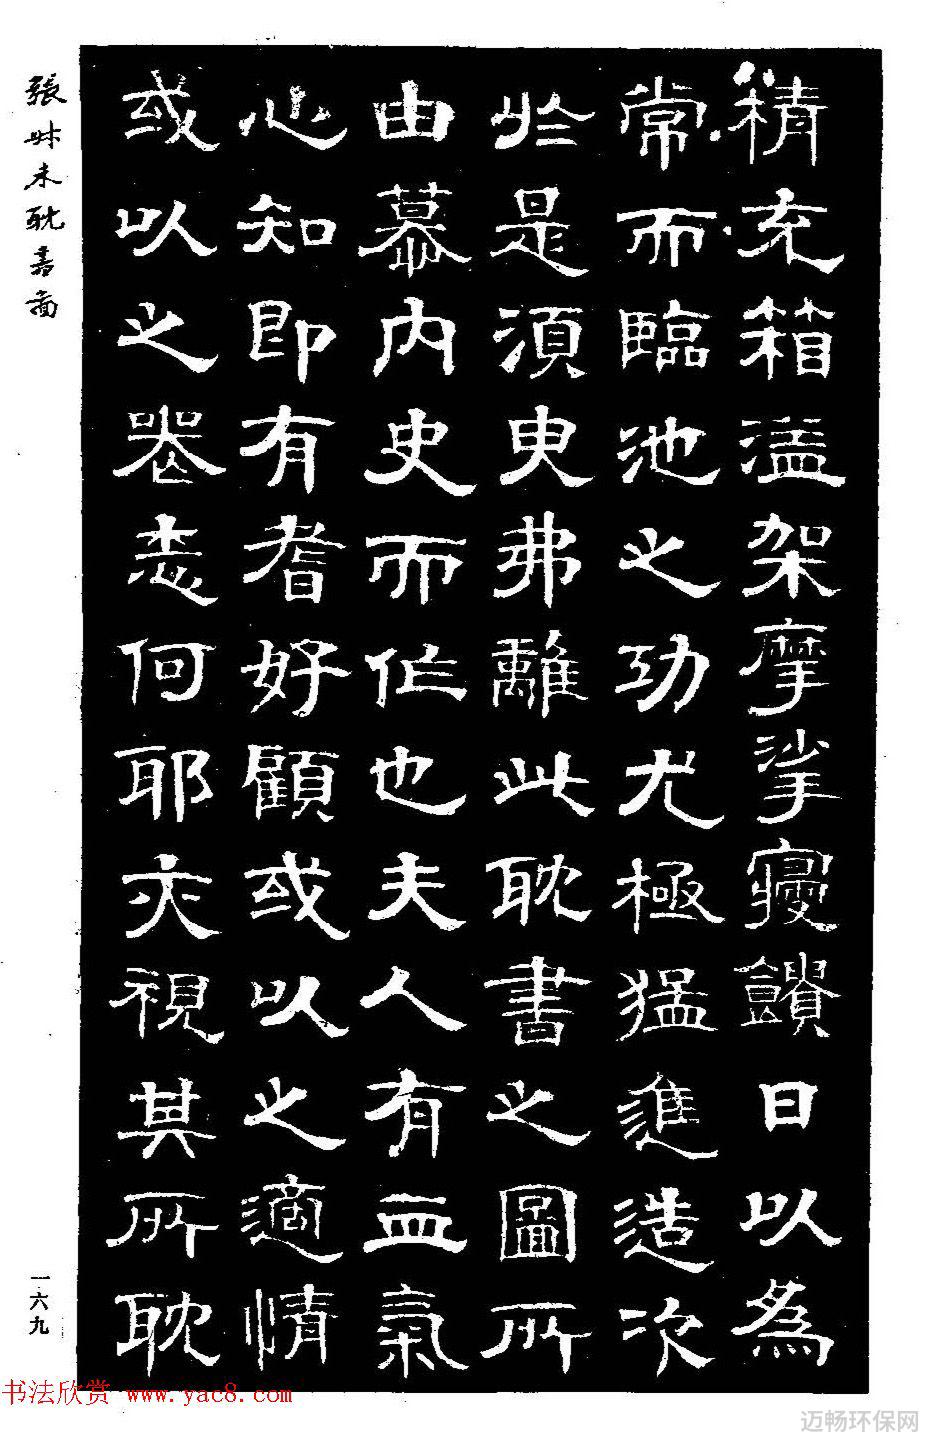 精充箱溢架摩挲寢饋日以為
常而臨池之功尤極猛進造次
於是須臾弗離此耽書之圖所
由慕內史而作也夫人有血氣
心知即有耆好顧或以之適情
或以之喪志何耶亦視其所耽
張叔未耽書圖
一六九
书法欣赏 www.yac8.com
迈畅环保网